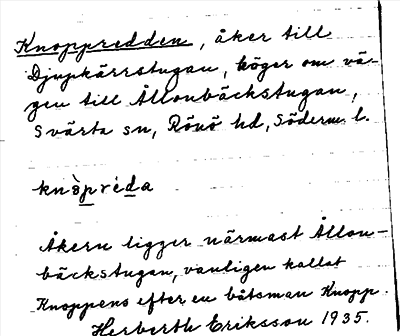 Knoppredden, åker till
Djupkärrstugan, höger om vä-
gen till Ållonbäckstugan,
Svärta sn, Rönö hd, Söderm. l.
knòpréda
Åkern ligger närmast Ållon-
bäckstugan, vanligen kallat
Knoppens efter en båtsman Knopp.
Herberth Eriksson 1935.